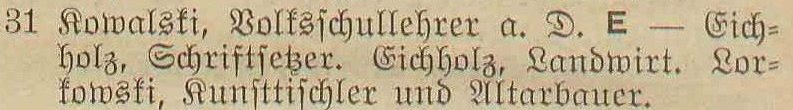 31 Kowalski, Volksschullehrer a. D. E — Eich=
holz, Schriftsetzer. Eichholz, Landwirt. Lor=
kowski, Kunsttischler und Altarbauer.